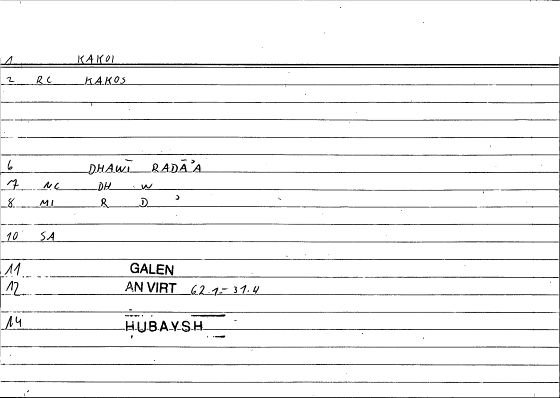 1 KAKOI
2 RC KAKOS
6 DHAWĪ RADĀ'A
7 NC DH W
8 MI R D '
10 SA
11 GALEN
12 AN VIRT 62.1-31.4
14 HUBAYSH